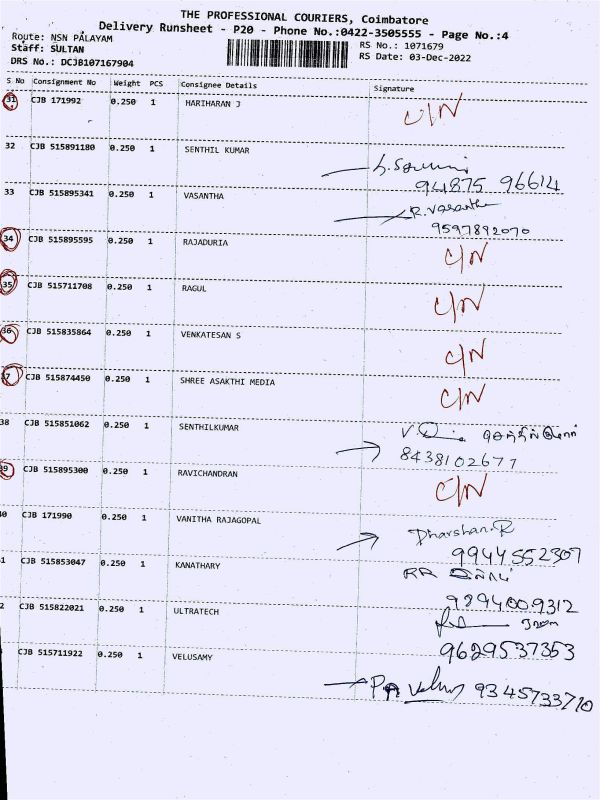 THE PROFESSIONAL COURIERS, Coimbatore
Delivery Runsheet - P20 - Phone No.:0422-3505555 - Page No.:4
Route: NSN PALAYAM
Staff: SULTAN
DRS No.: DCJB107167904
RS No.: 1071679
RS Date: 03-Dec-2022
S No Consignment No Weight PCS Consignee Details Signature
31 CJB 171992 0.250 1 HARIHARAN J C/N
32 CJB 515891180 0.250 1 SENTHIL KUMAR
94875 96614
33 CJB 515895341 0.250 1 VASANTHA R.Vasantha
9597892070
34 CJB 515895595 0.250 1 RAJADURIA C/N
35 CJB 515711708 0.250 1 RAGUL C/N
36 CJB 515835864 0.250 1 VENKATESAN S C/N
37 CJB 515874450 0.250 1 SHREE ASAKTHI MEDIA C/N
38 CJB 515851062 0.250 1 SENTHILKUMAR
8438102677
39 CJB 515895300 0.250 1 RAVICHANDRAN C/N
0 CJB 171990 0.250 1 VANITHA RAJAGOPAL Dharshan.R
9944552307
1 CJB 515853047 0.250 1 KANATHARY RR
9294009312
2 CJB 515822021 0.250 1 ULTRATECH
9629537353
CJB 515711922 0.250 1 VELUSAMY
9345733710